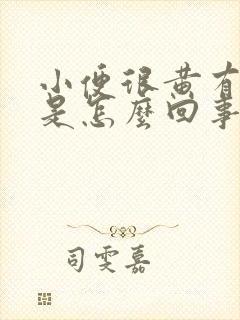 小便很黄有
是怎麼回事
司雯嘉